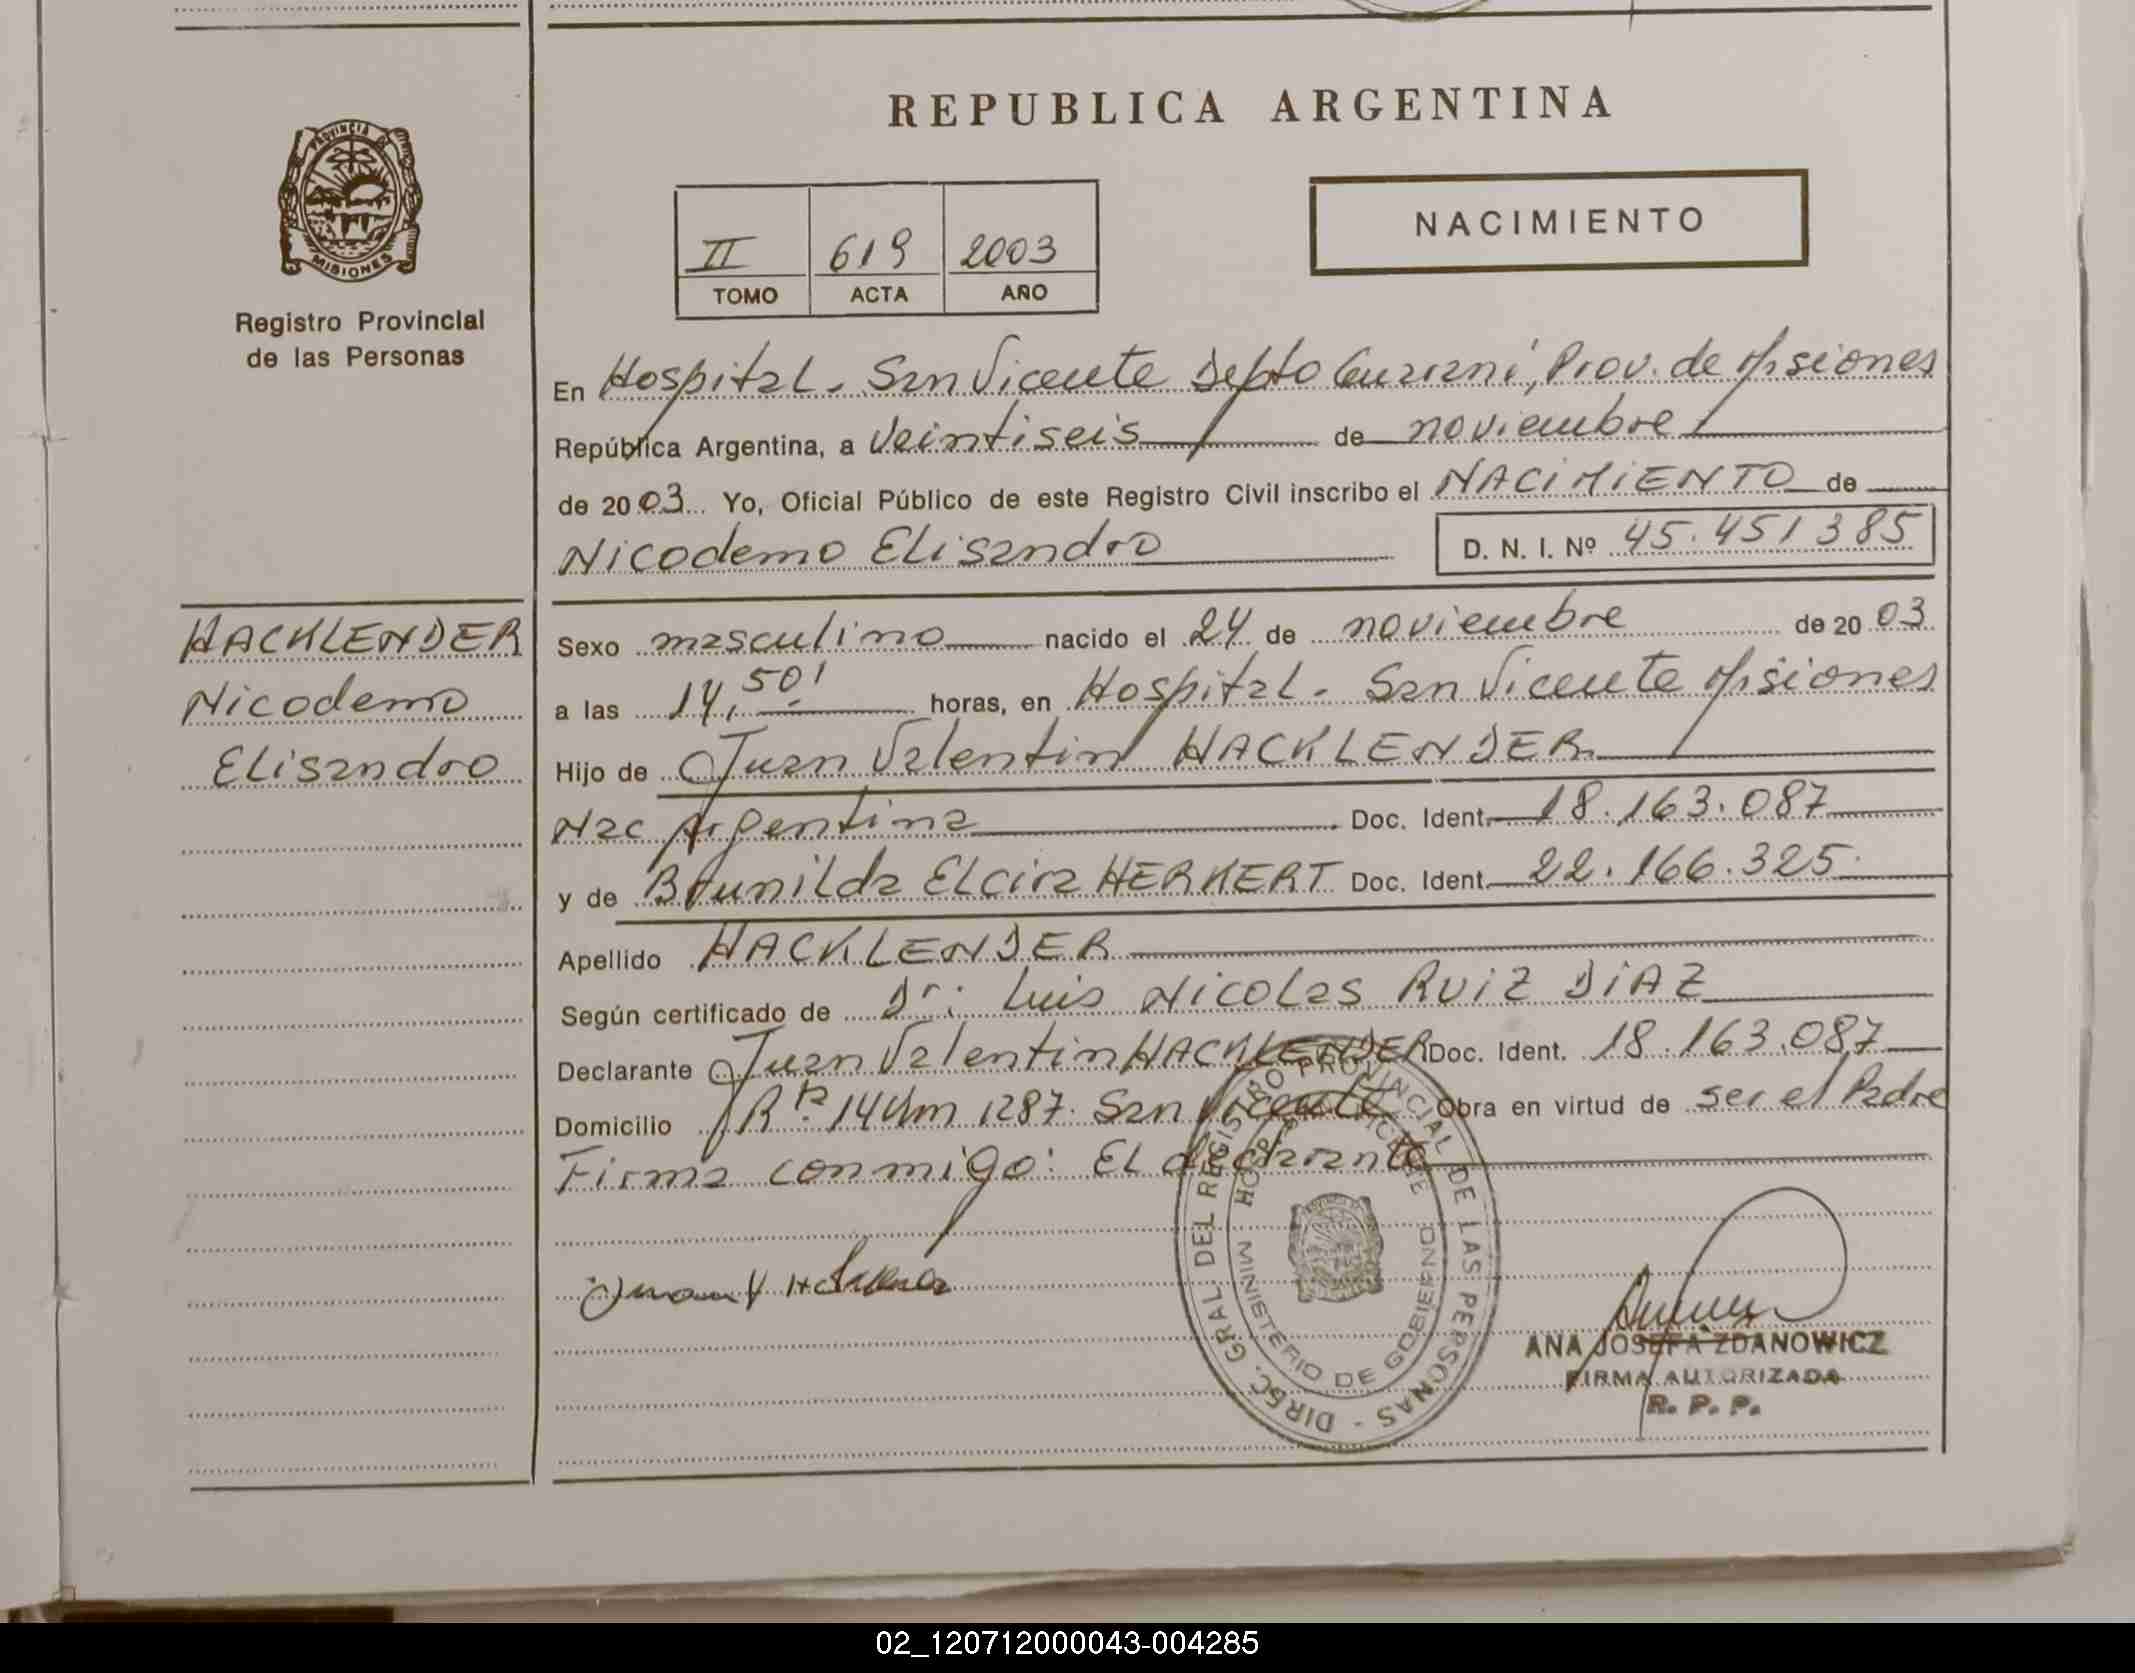 REPUBLICA ARGENTINA
PROVINCIA DE
MISIONES
Registro Provincial
de las Personas
NACIMIENTO
II 619 2003
TOMO ACTA AÑO
En Hospital. San Vicente Depto Guarani, Prov. de Misiones
República Argentina, a veintiseis de noviembre
de 2003 Yo, Oficial Público de este Registro Civil inscribo el NACIMIENTO de
Nicodemo Elisandro D. N. I. Nº 45.451385
HACKLENDER
Nicodemo
Elisandro
Sexo masculino nacido el 24 de noviembre de 2003
a las 14,50' horas, en Hospital. San Vicente Misiones
Hijo de Juan Valentin HACKLENDER
Nac Argentina Doc. Ident. 18.163.087
y de Brunilda Elcira HERKERT Doc. Ident. 22.166.325
Apellido HACKLENDER
Según certificado de Dr: Luis Nicolas RUIZ DIAZ
Declarante Juan Valentin HACKLENDER Doc. Ident. 18.163.087
Domicilio Rta 14 Km 1287. San Vicente Obra en virtud de ser el Padre
Firma conmigo: El declarante
DIREC. GRAL. DEL REGISTRO PROVINCIAL DE LAS PERSONAS -
MINISTERIO DE GOBIERNO
ANA JOSEFA ZDANOWICZ
FIRMA AUTORIZADA
R. P. P.
02_120712000043-004285